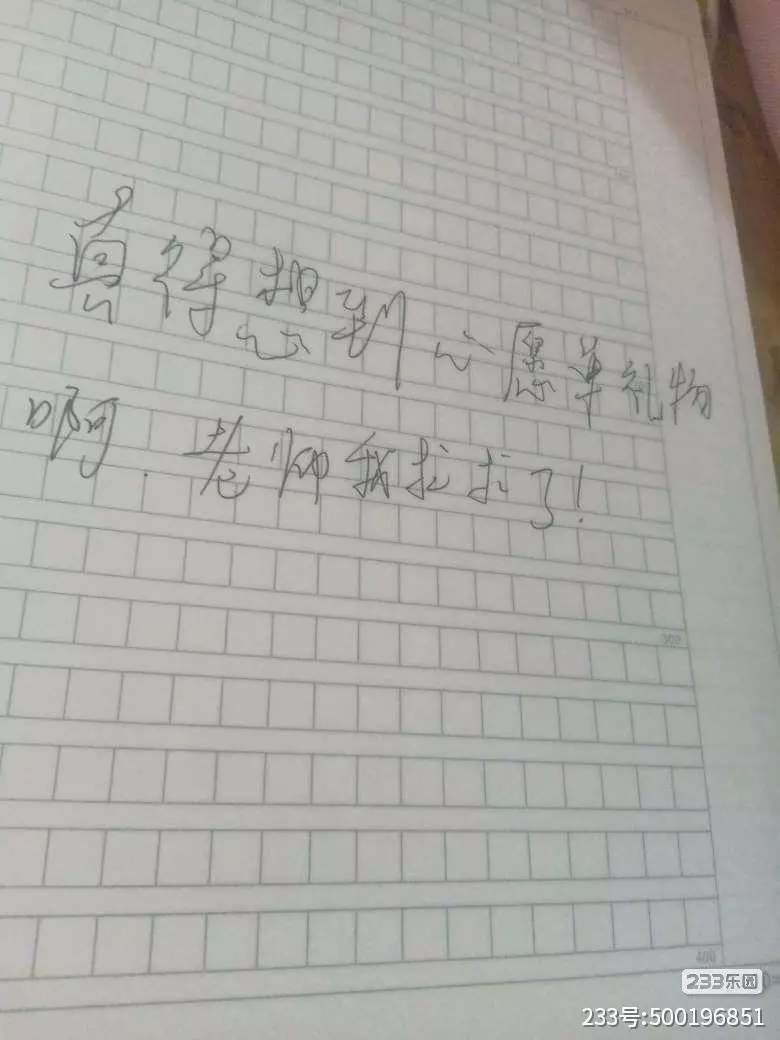 真得想到心愿单礼物
啊.老师我拉拉了!
400
233乐园
233号:500196851